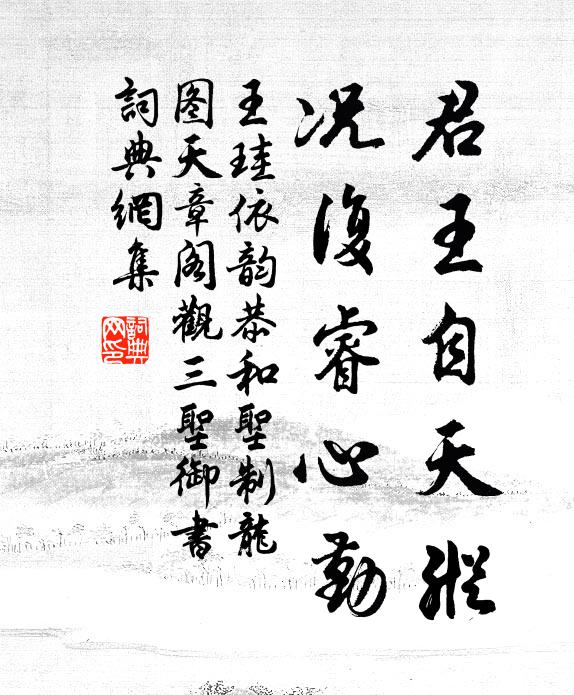 君王自天縱
况復睿心勤
王珪依韵恭和聖制龍
图天章阁觀三聖御書
詞典網集
詞典網印